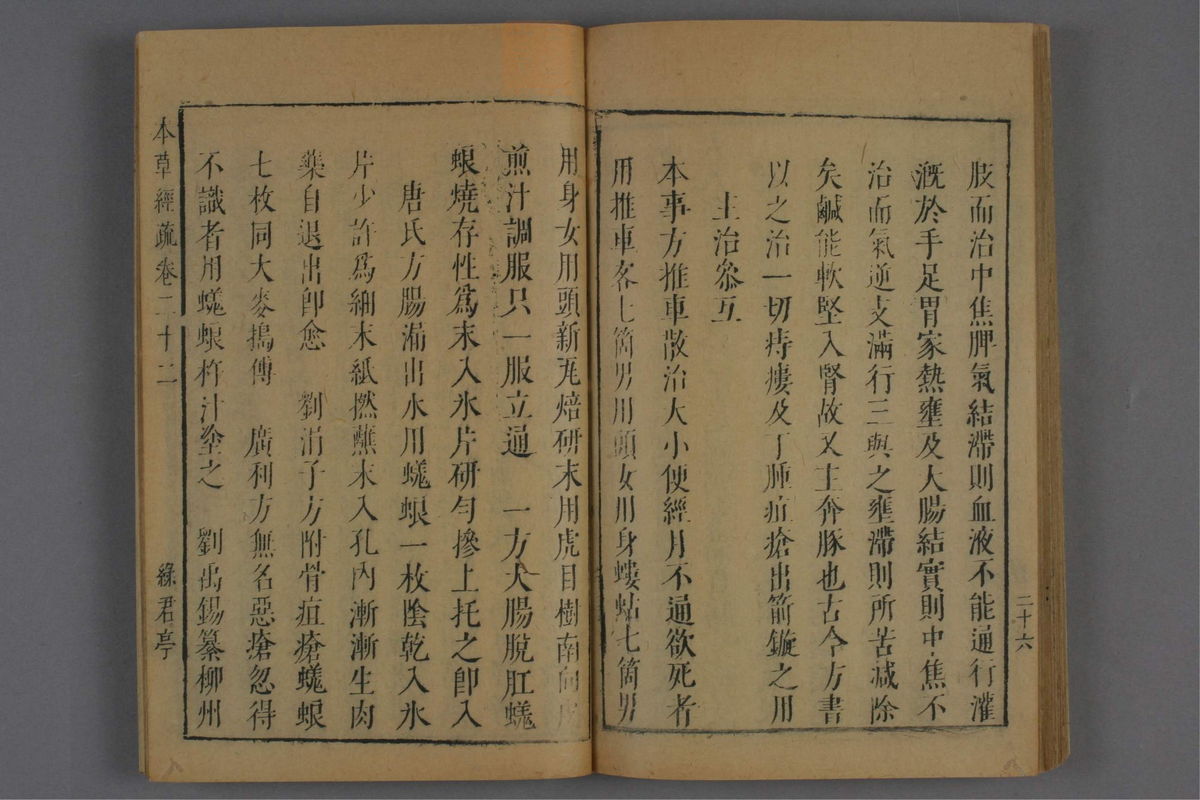 肢而治中焦脾氣結滯則血液不能通行灌
溉於手足胃家熱壅及大腸結實則中焦不
治而氣逆支滿行三與之壅滯則所苦減除
矣鹹能軟堅入腎故又主奔豚也古今方書
以之治一切痔瘻及丁腫疽瘡出箭鏃之用
主治叅互
本事方推車散治大小便經月不通欲死者
用推車客七箇男用頭女用身螻蛄七箇男
用身女用頭新瓦焙研末用虎目樹南向皮
煎汁調服只一服立通　一方大腸脫肛蜣
蜋燒存性爲末入氷片研勻摻上托之卽入
唐氏方腸漏出水用蜣蜋一枚陰乾入氷
片少許爲細末紙撚蘸末入孔內漸漸生肉
藥自退出卽愈　劉涓子方附骨疽瘡蜣蜋
七枚同大麥搗傅　廣利方無名惡瘡忽得
不識者用蜣蜋杵汁塗之　劉禹錫纂柳州
本草經疏卷二十二
綠君亭
二十六